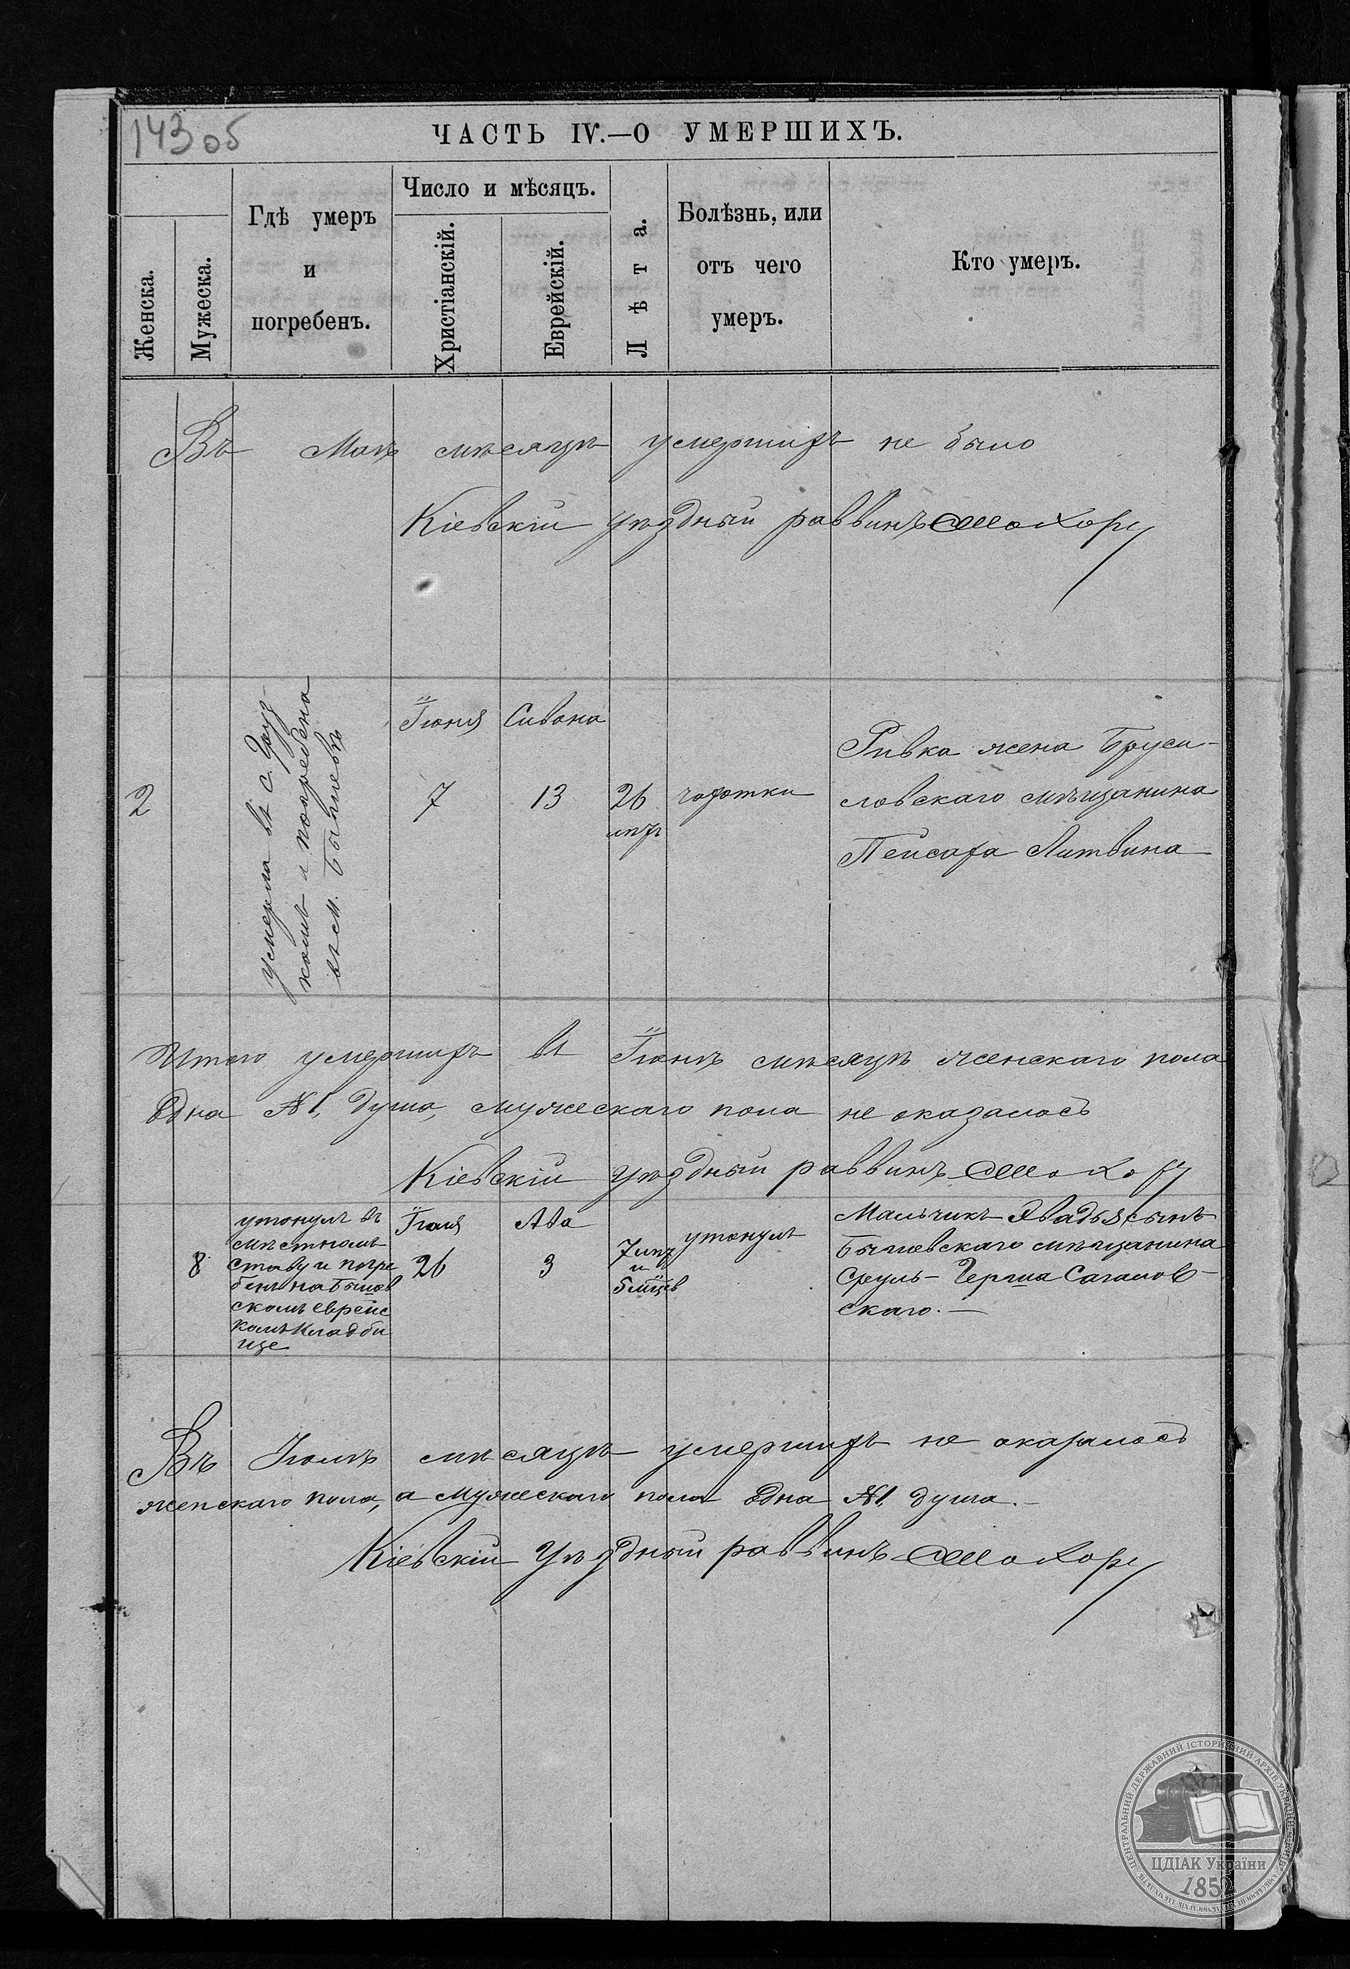 143 об
ЧАСТЬ IV.—О УМЕРШИХЪ.
Женска.
Мужеска.
Гдѣ умеръ
и
погребенъ.
Число и мѣсяцъ.
Христіанскій.
Еврейскій.
Лѣта.
Болѣзнь, или
отъ чего
умеръ.
Кто умеръ.
Въ Маѣ мѣсяцѣ умершихъ не было
Кіевскій уѣздный раввинъ
2
умерла въ с. 
комъ и погребена
въ м. Бышевѣ
Іюня
7
Сивана
13
26
лѣтъ
чахотки
Ривка жена Бруси-
ловскаго мѣщанина
Пейсаха Литвина
Итого умершихъ въ Іюнѣ мѣсяцѣ женскаго пола
одна №1, душа, мужескаго пола не оказалось
Кіевскій уѣздный раввинъ
8
утонулъ въ
мѣстномъ
ставу и погре
бенъ на Бышов
скомъ еврейс
комъ кладби
ще
Іюля
26
Ава
3
7 лѣтъ
и
5 мѣсцев
утонулъ
Мальчикъ сынъ
Бышевскаго мѣщанина
Сруль-Герша Сагалов-
скаго.—
Въ Іюлѣ мѣсяцѣ умершихъ не оказалось
женскаго пола, а мужескаго пола одна №1, душа.—
Кіевскій уѣздный раввинъ
ЦЕНТРАЛЬНИЙ ДЕРЖАВНИЙ ІСТОРИЧНИЙ АРХІВ УКРАЇНИ
ЦДІАК України
1852